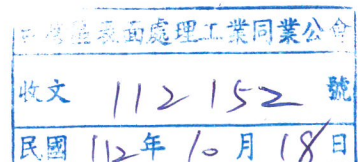 台灣區表面處理工業同業公會
收文 112152 號
民國 112年 10月 18日